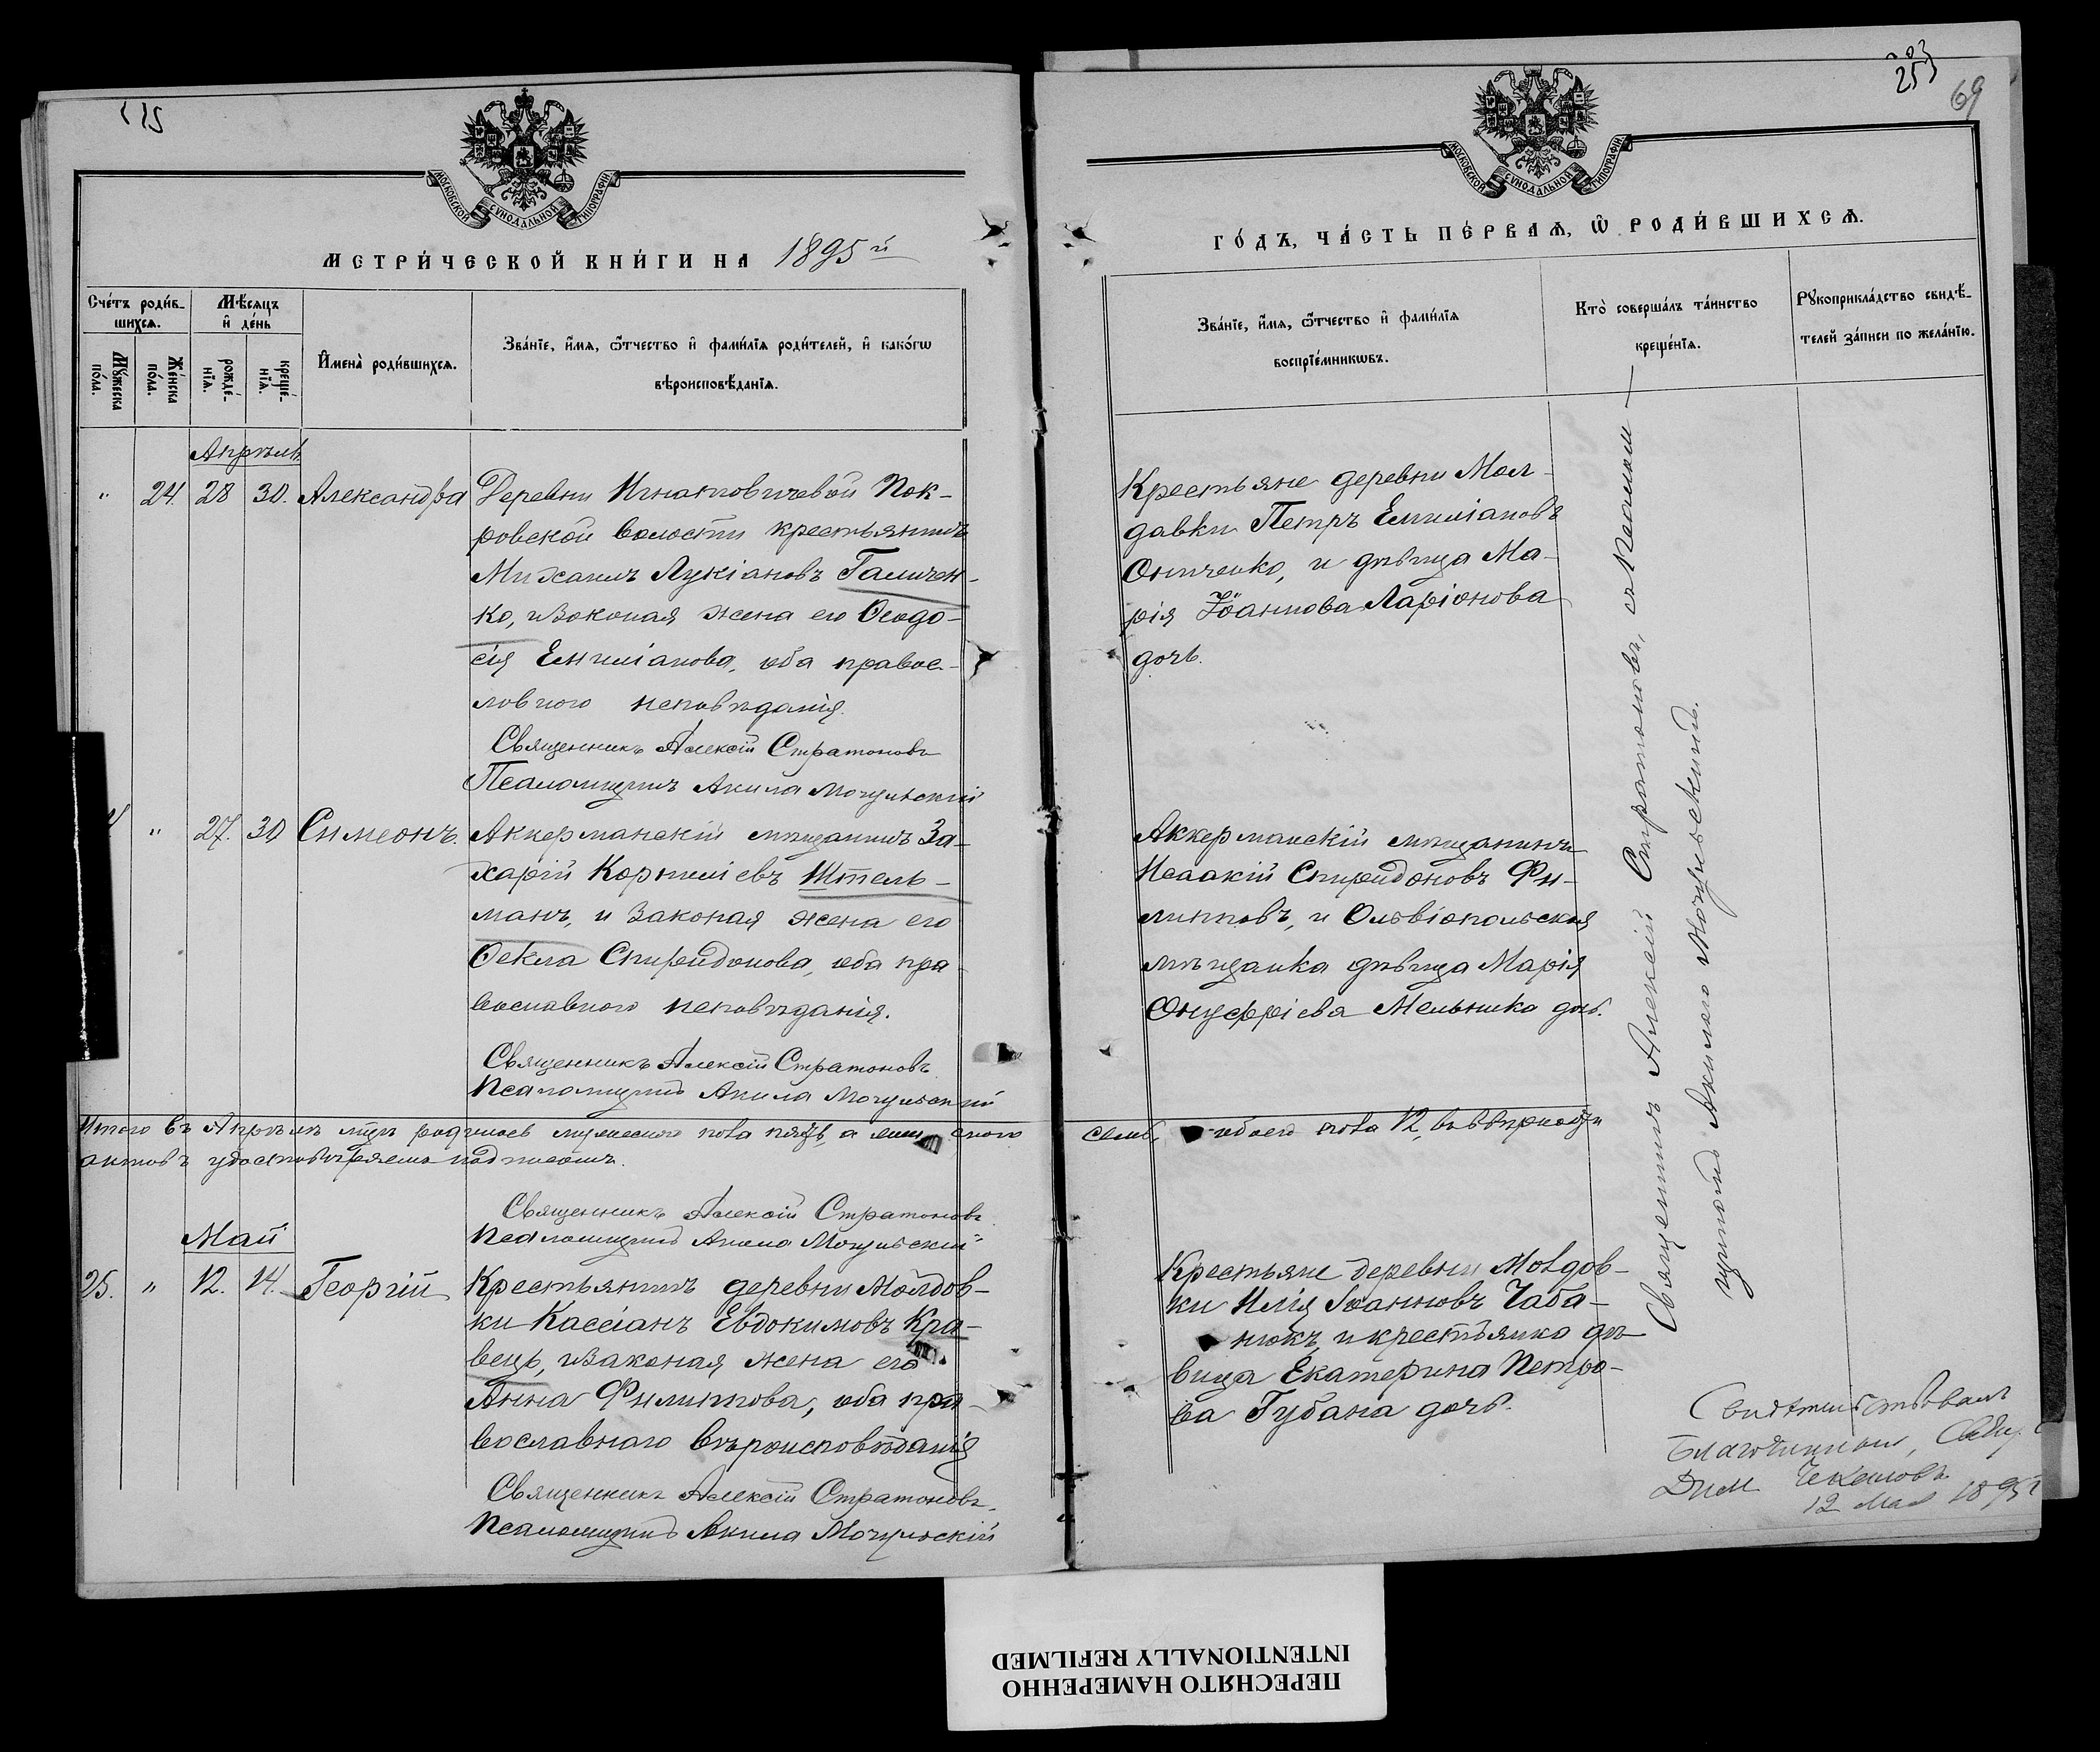 МОСКОВСКОЙ СѴНОДАЛЬНОЙ ТИПОГРАФІИ
МЕТРИ́ЧЕСКОЙ КНИ́ГИ НА 1895 й
Сче́тъ роди́вшихсѧ.
Мꙋ́жеска по́ла.
Же́нска по́ла.
Мѣ́сѧцъ и҆ де́нь
рожде́нїѧ.
креще́нїѧ.
И҆мена̀ роди́вшихсѧ.
Зва́нїе, и҆́мѧ, ѻ҆́тчество и҆ фами́лїѧ роди́телей, и҆ како́гѡ
вѣроисповѣ́данїѧ.
Апрѣль
" 24. 28 30. Александра
Деревни Игнатовичевой Пок-
ровской волости крестьянинъ
Михаилъ Лукіановъ Галичен-
ко, и Законая жена его Ѳеодо-
сія Емиліанова, оба правос-
ловного исповѣданія.
Священникъ Алексій Стратоновъ
Псаломщикъ Акила Могульскій
" 27. 30 Симеонъ.
Аккерманскій мѣщанинъ За-
харій Корниліевъ Штель-
манъ, и Законая жена его
Ѳекла Спиридонова, оба пра-
вославного исповѣданія.
Священникъ Алексій Стратоновъ
Псаломщикъ Акила Могульскій
Итого въ Апрѣлѣ мцѣ родилось мужеского пола пять, а женского
актовъ удостовѣряемъ подписомъ.
Священникъ Алексій Стратоновъ
Псаломщикъ Акила Могульскій
Май
25. " 12. 14. Георгій
Крестьянинъ деревни Молдов-
ки Кассіанъ Евдокимовъ Кра-
вецъ, и Законая жена его
Анна Филиппова, оба пра-
вославнаго вѣроисповѣданія
Священникъ Алексій Стратоновъ
Псаломщикъ Акила Могульскій
253
69
МОСКОВСКОЙ СѴНОДАЛЬНОЙ ТИПОГРАФІИ
ГО́ДЪ, ЧА́СТЬ ПЕ́РВАѦ, Ѡ҆ РОДИ́ВШИХСѦ.
Зва́нїе, и҆́мѧ, ѻ҆́тчество и҆ фами́лїѧ
воспрїе́мникѡвъ.
Кто̀ соверша́лъ та́инство
креще́нїѧ.
Рꙋкоприкла́дство свидѣ́-
телей за́писи по жела́нїю.
Крестьяне деревни Мол-
давки Петръ Емиліановъ
Онипченко, и дѣвица Ма-
рія Іоаннова Ларіонова
дочь.
Аккерманскій мѣщанинъ
Исаакій Спиридоновъ Фи-
липповъ, и Ольвіопольская
мѣщанка дѣвица Марія
Онуфріева Мельника дочь.
семь, обоего пола 12, въ вѣрности
Крестьяне деревни Молдов-
ки Илія Іоанновъ Чаба-
нюкъ, и крестьянка дѣ-
вица Екатерина Петро-
ва Губана дочь.
Священникъ Алексій Стратоновъ, съ Псалом-
щикомъ Акилою Могульскимъ.
Свидѣтельствовалъ
Благочинный,
Дим. Чекановъ
12 Мая 1895 г
ПЕРЕСНЯТО НАМЕРЕННО
INTENTIONALLY REFILMED